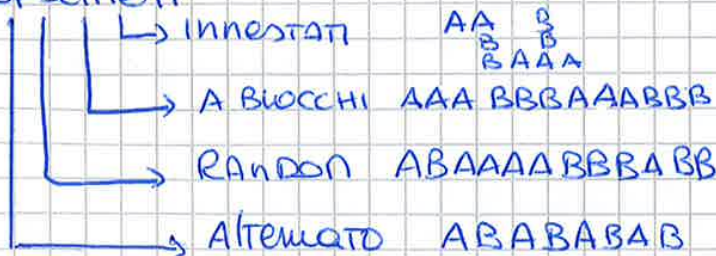 INNESTATI AA B
B B
B A A A
A BLOCCHI AAA BBBAAABBB
RANDOM ABAAAABBBABB
AlTERNATO ABABABAB